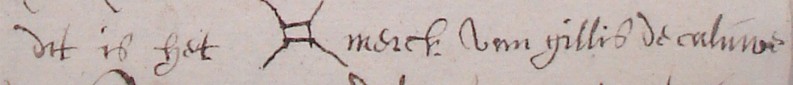 dit is het merck van gillis de caluwe